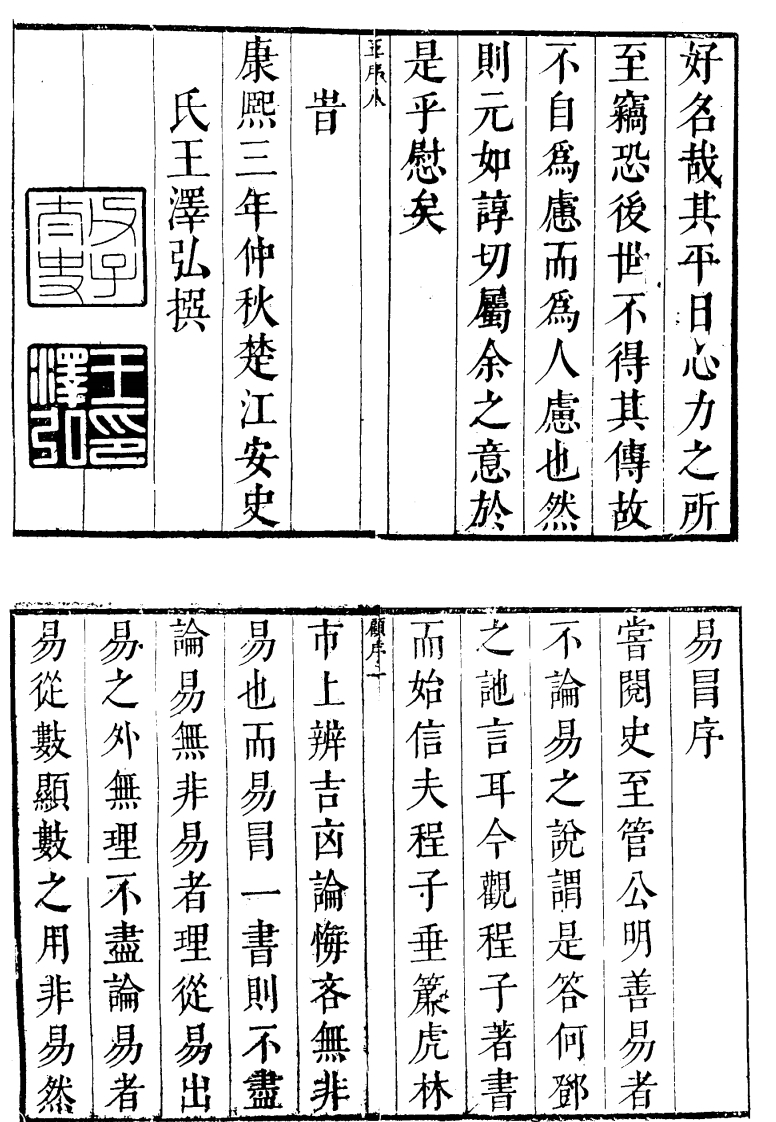 好名哉其平日心力之所
至竊恐後世不得其傳故
不自爲慮而爲人慮也然
則元如諄切屬余之意於
是乎慰矣
王序八
旹
康熙三年仲秋楚江安史
氏王澤弘撰
王印澤弘
易冒序
嘗閱史至管公明善易者
不論易之說謂是答何鄧
之訑言耳今觀程子著書
而始信夫程子垂簾虎林
顧序一
市上辨吉凶論悔吝無非
易也而易冒一書則不盡
論易無非易者理從易出
易之外無理不盡論易者
易從數顯數之用非易然